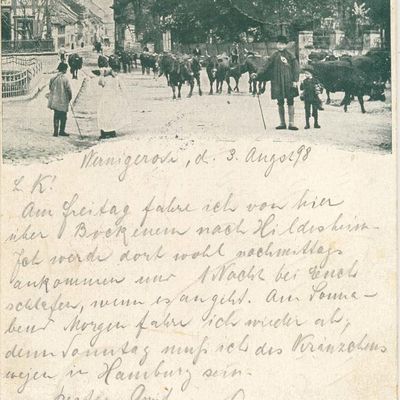 Wernigerode, d. 3. Aug 98
L K!
Am Freitag fahre ich von hier
über Bockenem nach Hildesheim.
Ich werde dort wohl nachmittags
ankommen und 1 Nacht bei Euch
schlafen, wenn es angeht. Am Sonna-
bend Morgen fahre ich wieder ab,
denn Sonntag muß ich des Kränzchens
wegen in Hamburg sein.
besten Gruß